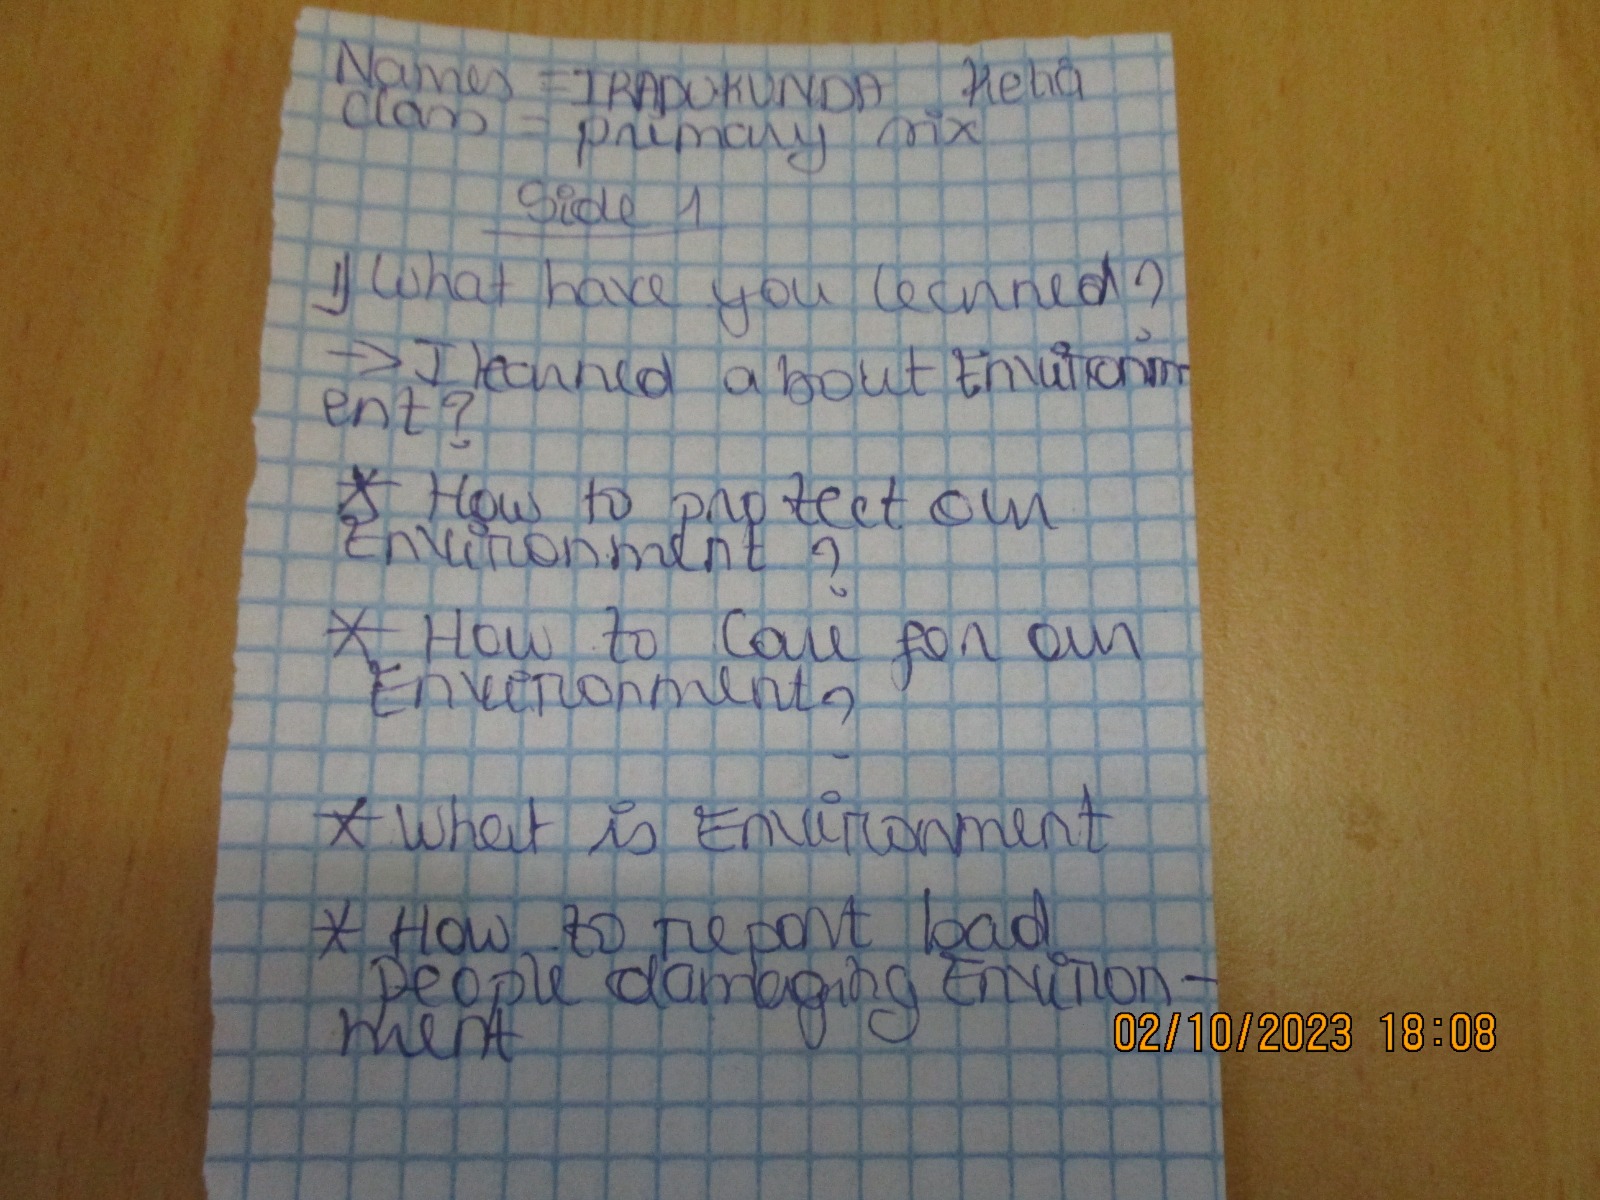 Names = IRADUKUNDA Kelia
Class = primary six
Side 1
1) What have you learned?
→ I learned about Environm
ent?
* How to protect our
Environment?
* How to Care for our
Environment?
* What is Environment
* How to report bad
people damaging Environ-
ment
02/10/2023 18:08